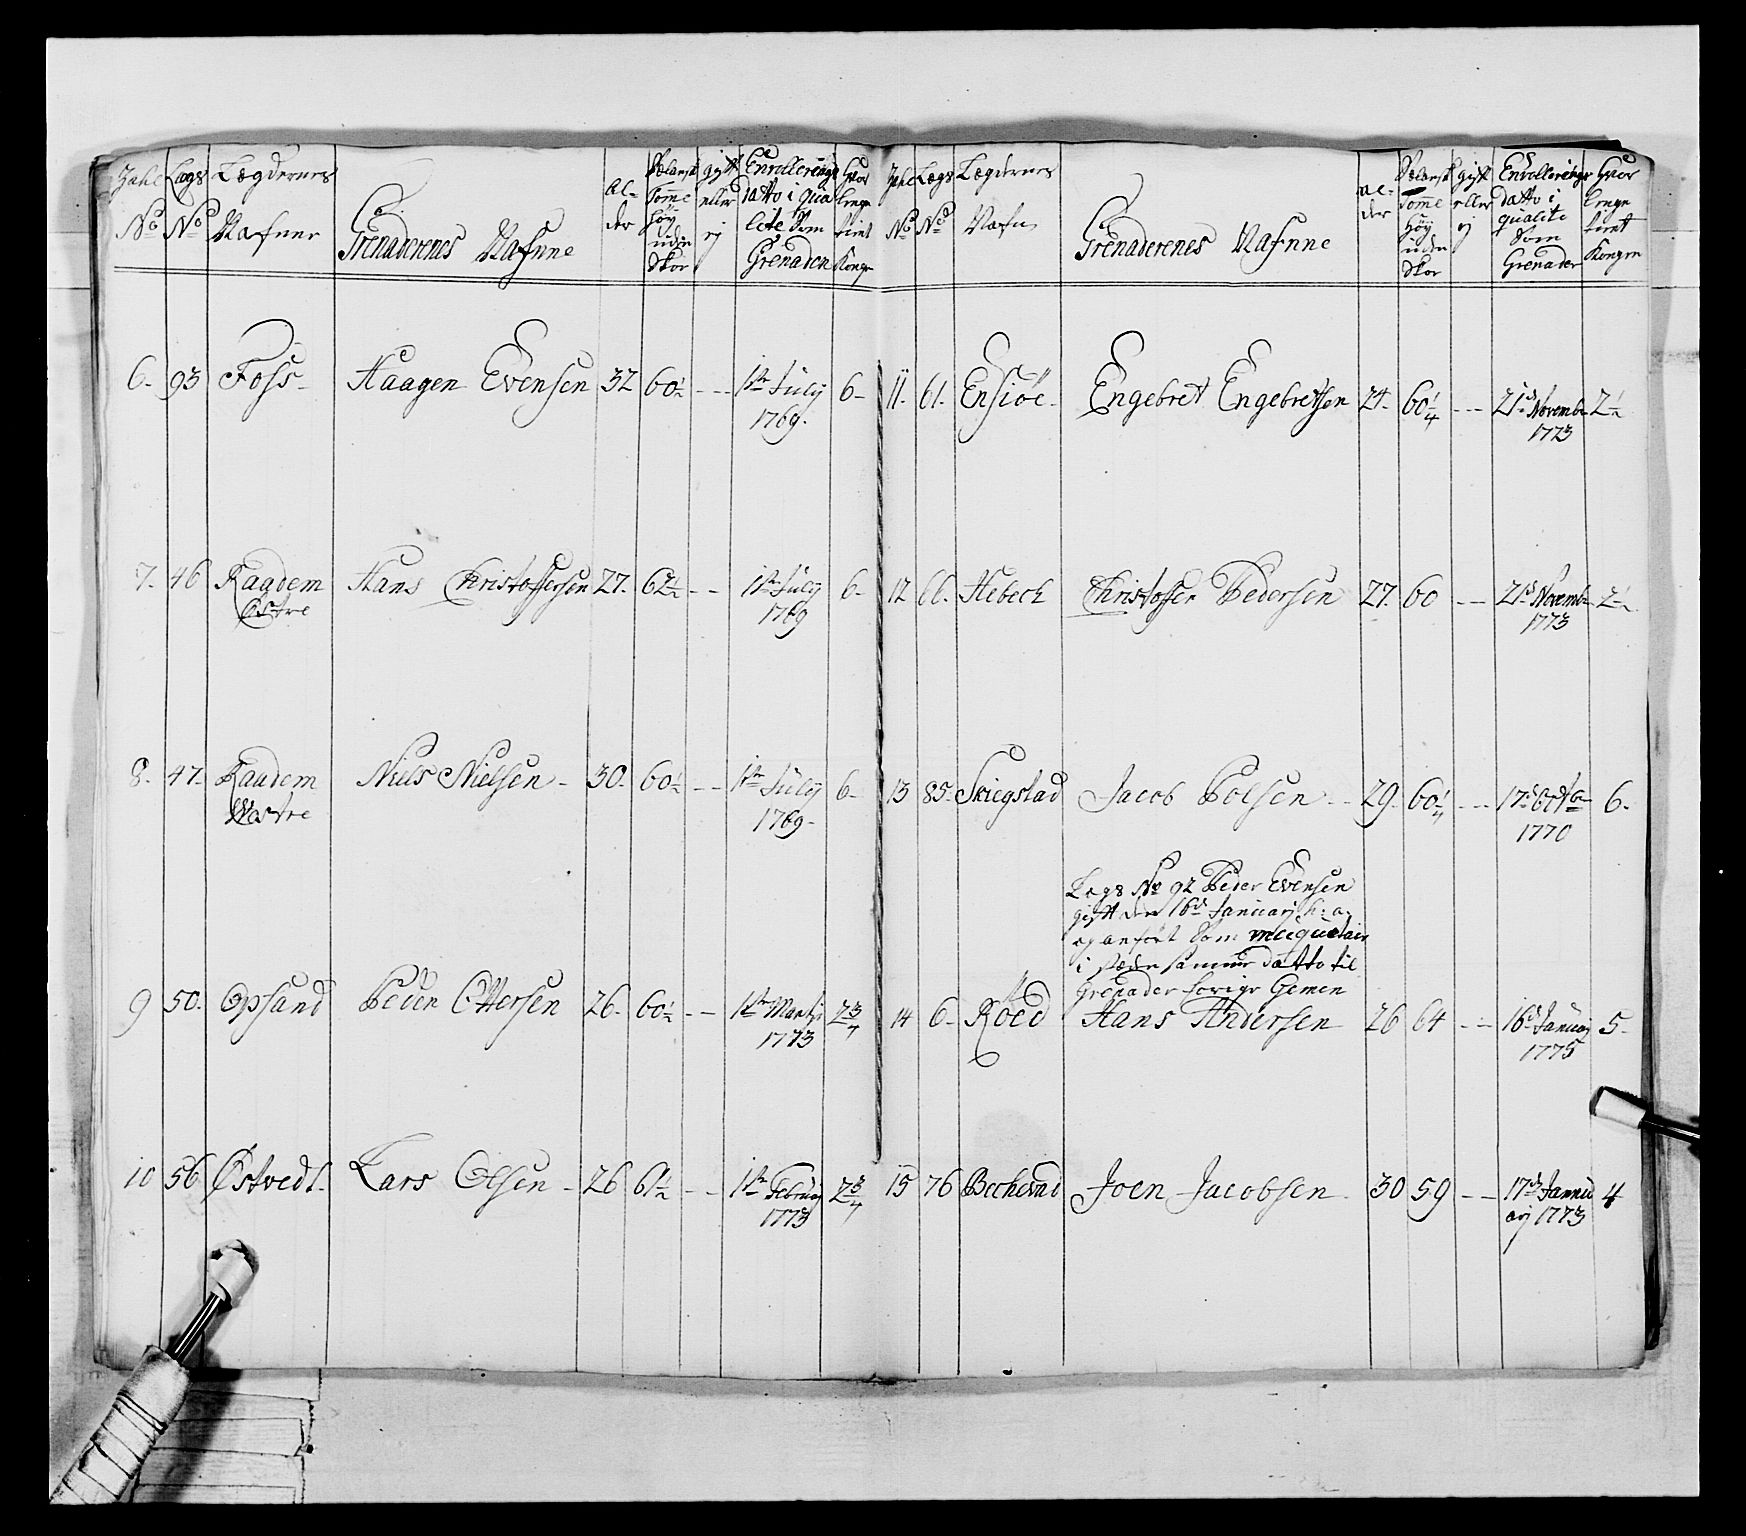 Zahl No | Lægs No | Lægdernes Nafner | Grenaderenes Nafnne | Al-der | tomme høy uden Skor | gift eller ej | Enrollerings datto i qualite Som Grenaderer | Hvor lenge tient Konge
6. 93 Foss Haagen Evensen 32 60½ -- 1te July 6-
1769.
7. 46 Raadem Hans Christoffersen 27. 62½ -- 1te July 6-
Østre 1769
8. 47. Raadem Niels Nielsen 30. 60½ -- 1te July 6-
Wæstre 1769
9 50. Opsand Peder Ottersen 26. 60½ -- 1te Martj 2¾
1773
10 56 Østvedt Lars Olsen 26 61½ -- 1te Februarj 2¾
1773
Zahl No | Lægs No | Lægdernes Nafn | Grenaderenes Nafnne | al-der | tomme høy uden Skor | gift eller ej | Enrollerings datto i qualite Som Grenader | Hvor lenge tient Kongen
11. 61. Ensiöe Engebret Engebretsen 24. 60¼ -- 21de Novembr 2½
1773
12 66. Hebech Christoffer Pedersen 27. 60 -- 21de Novembr 2½
1773
13 85. Skiegstad Jacob Polsen 29. 60¼ -- 17de Octbr 6.
1770
Legs No 92 Peder Evensen
gift den 16de Januarj h: a:
og anført Som
i steden samme datto til
Grenader forige Gemen
14 6. Röed Hans Andersen 26 64 -- 16de Januarj 5-
1775
15 76 Bechevad Joen Jacobsen 30 59 -- 17de Janu 4
arj 1773